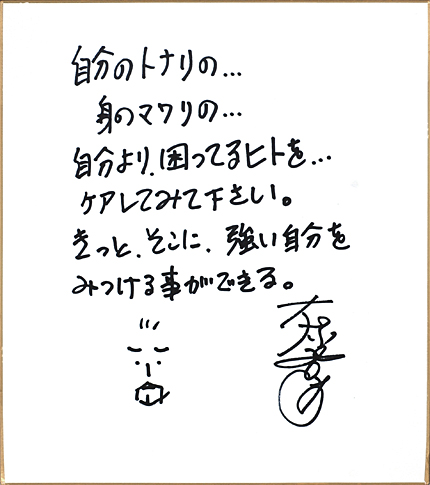 自分のトナリの…
身のマワリの…
自分より、困ってるヒトを…
ケアしてみて下さい。
きっと、そこに、強い自分を
みつける事ができる。